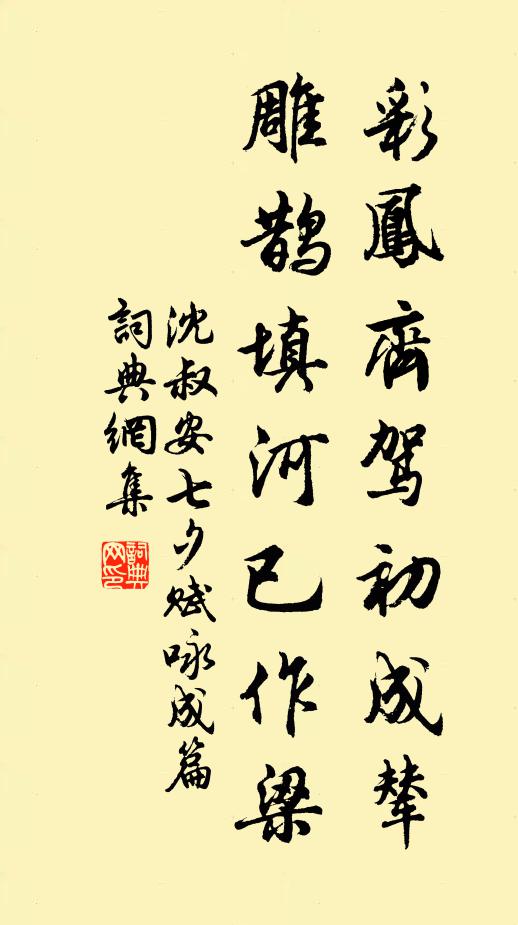 彩鳳齊駕初成輦
雕鵲填河已作梁
沈叔安七夕賦咏成篇
詞典網集
詞典网印